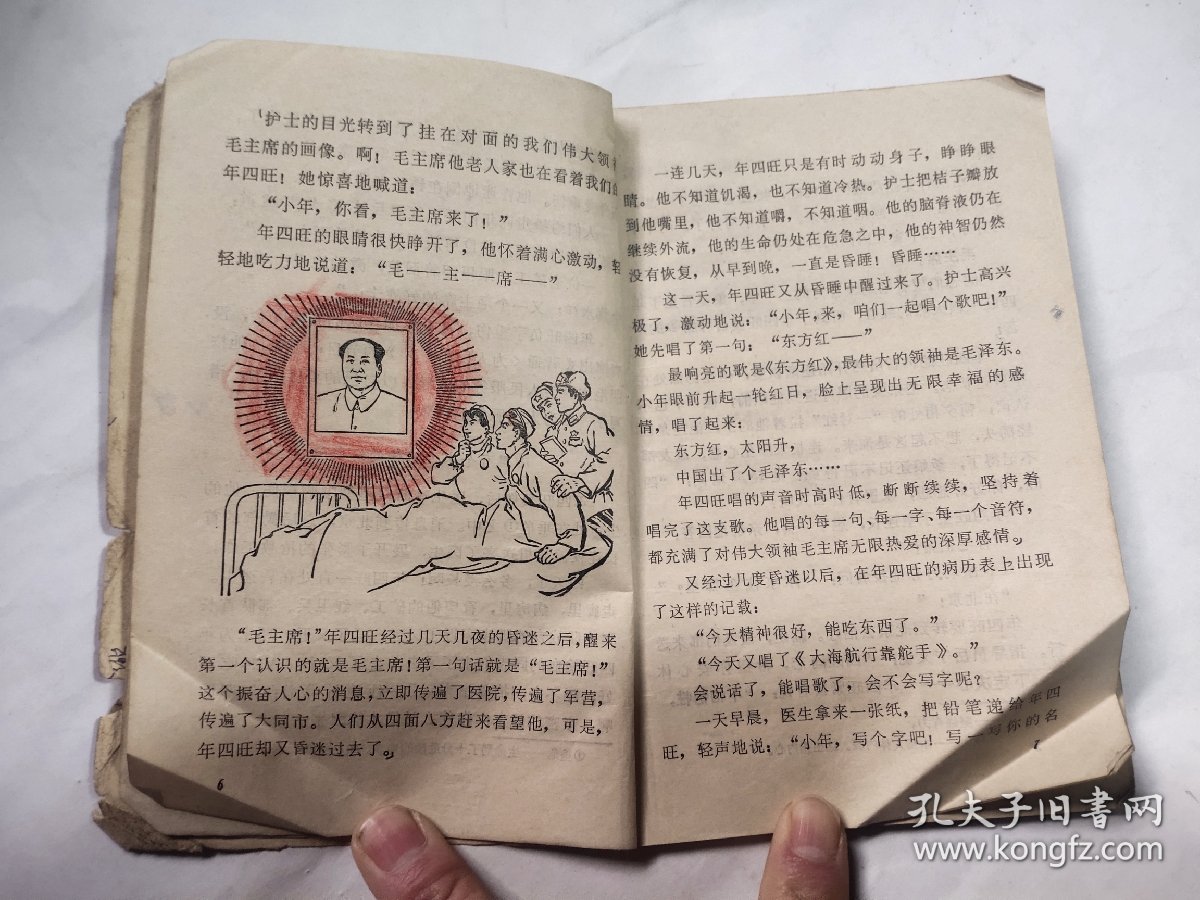 护士的目光转到了挂在对面的我们伟大领
毛主席的画像。啊！毛主席他老人家也在看着我们
年四旺！她惊喜地喊道：
“小年，你看，毛主席来了！”
年四旺的眼睛很快睁开了，他怀着满心激动，轻
轻地吃力地说道：“毛——主——席——”
“毛主席！”年四旺经过几天几夜的昏迷之后，醒来
第一个认识的就是毛主席！第一句话就是“毛主席！”
这个振奋人心的消息，立即传遍了医院，传遍了军营，
传遍了大同市。人们从四面八方赶来看望他，可是，
年四旺却又昏迷过去了。
6
一连几天，年四旺只是有时动动身子，睁睁眼
睛。他不知道饥渴，也不知道冷热。护士把桔子瓣放
到他嘴里，他不知道嚼，不知道咽。他的脑脊液仍在
继续外流，他的生命仍处在危急之中，他的神智仍然
没有恢复，从早到晚，一直是昏睡！昏睡……
这一天，年四旺又从昏睡中醒过来了。护士高兴
极了，激动地说：“小年，来，咱们一起唱个歌吧！”
她先唱了第一句：“东方红——”
最响亮的歌是《东方红》，最伟大的领袖是毛泽东。
小年眼前升起一轮红日，脸上呈现出无限幸福的感
情，唱了起来：
东方红，太阳升，
中国出了个毛泽东……
年四旺唱的声音时高时低，断断续续，坚持着
唱完了这支歌。他唱的每一句、每一字、每一个音符，
都充满了对伟大领袖毛主席无限热爱的深厚感情。
又经过几度昏迷以后，在年四旺的病历表上出现
了这样的记载：
“今天精神很好，能吃东西了。”
“今天又唱了《大海航行靠舵手》。”
会说话了，能唱歌了，会不会写字呢？
一天早晨，医生拿来一张纸，把铅笔递给年四
旺，轻声地说：“小年，写个字吧！写一写你的名
7
孔夫子旧书网
www.kongfz.com